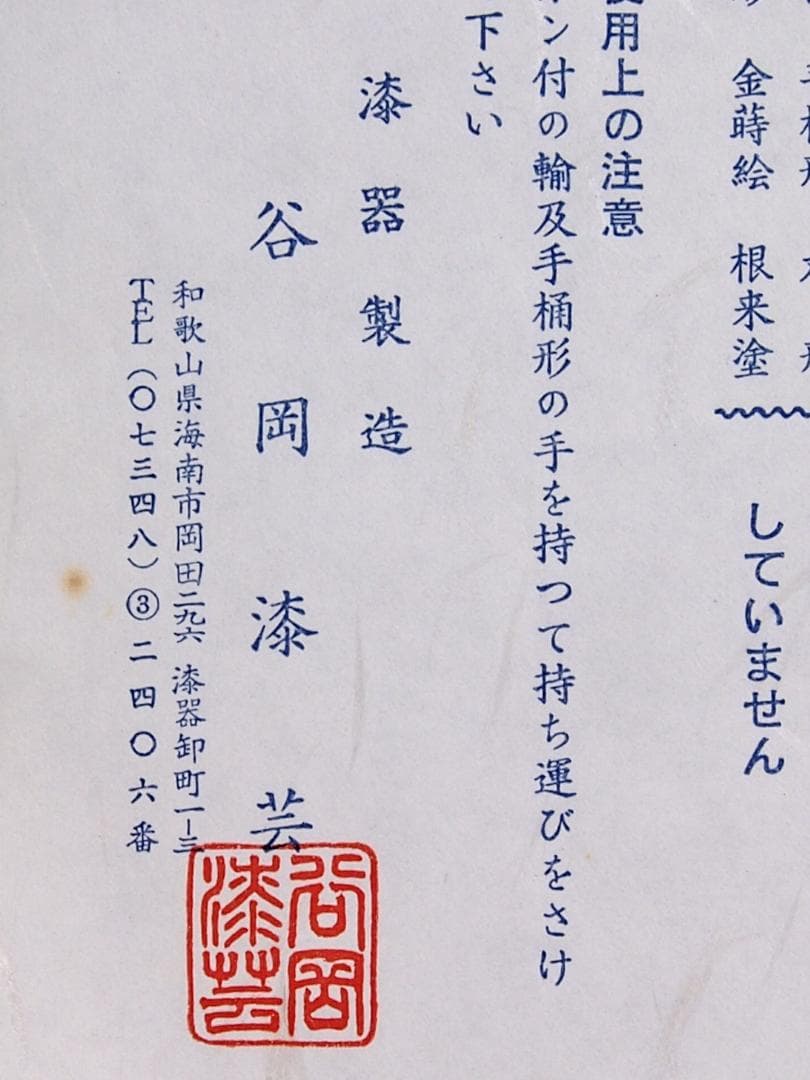 金蒔絵 根来塗
していません
使用上の注意
ン付の輸及手桶形の手を持つて持ち運びをさけ
下さい
漆器製造
谷岡漆芸
和歌山県海南市岡田二九六 漆器卸町一ー三
TEL(〇七三四八)③二四〇六番
谷岡
漆芸